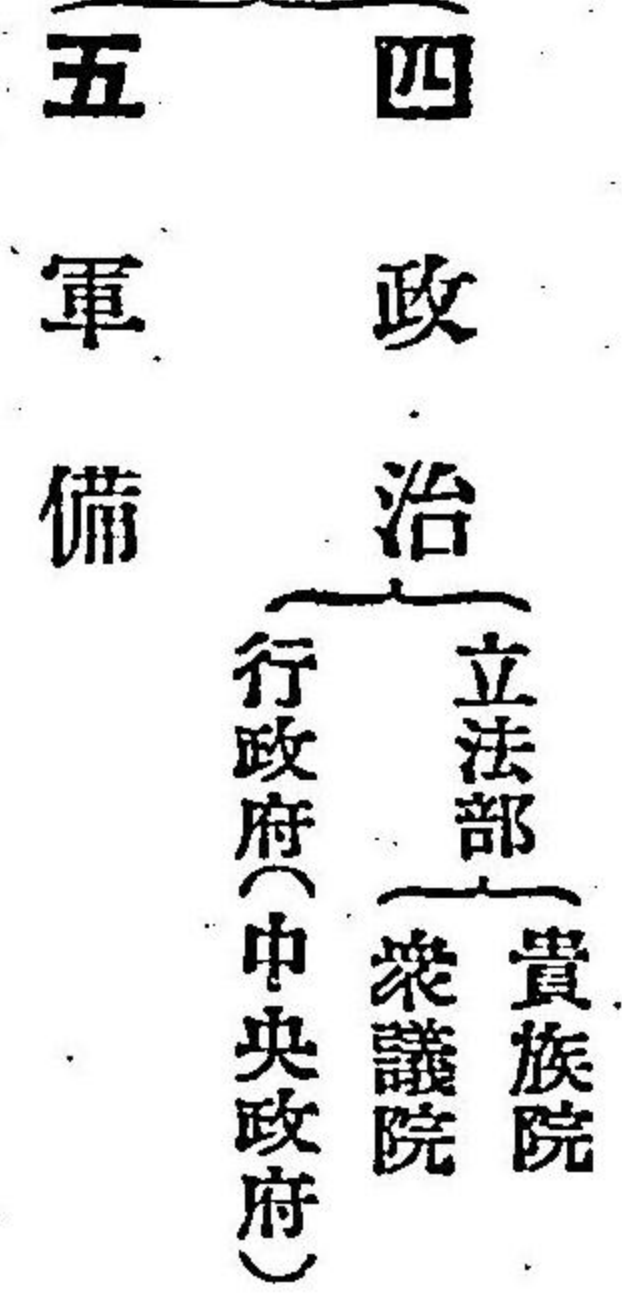 四 政治
立法部
貴族院
衆議院
行政府（中央政府）
五 軍備